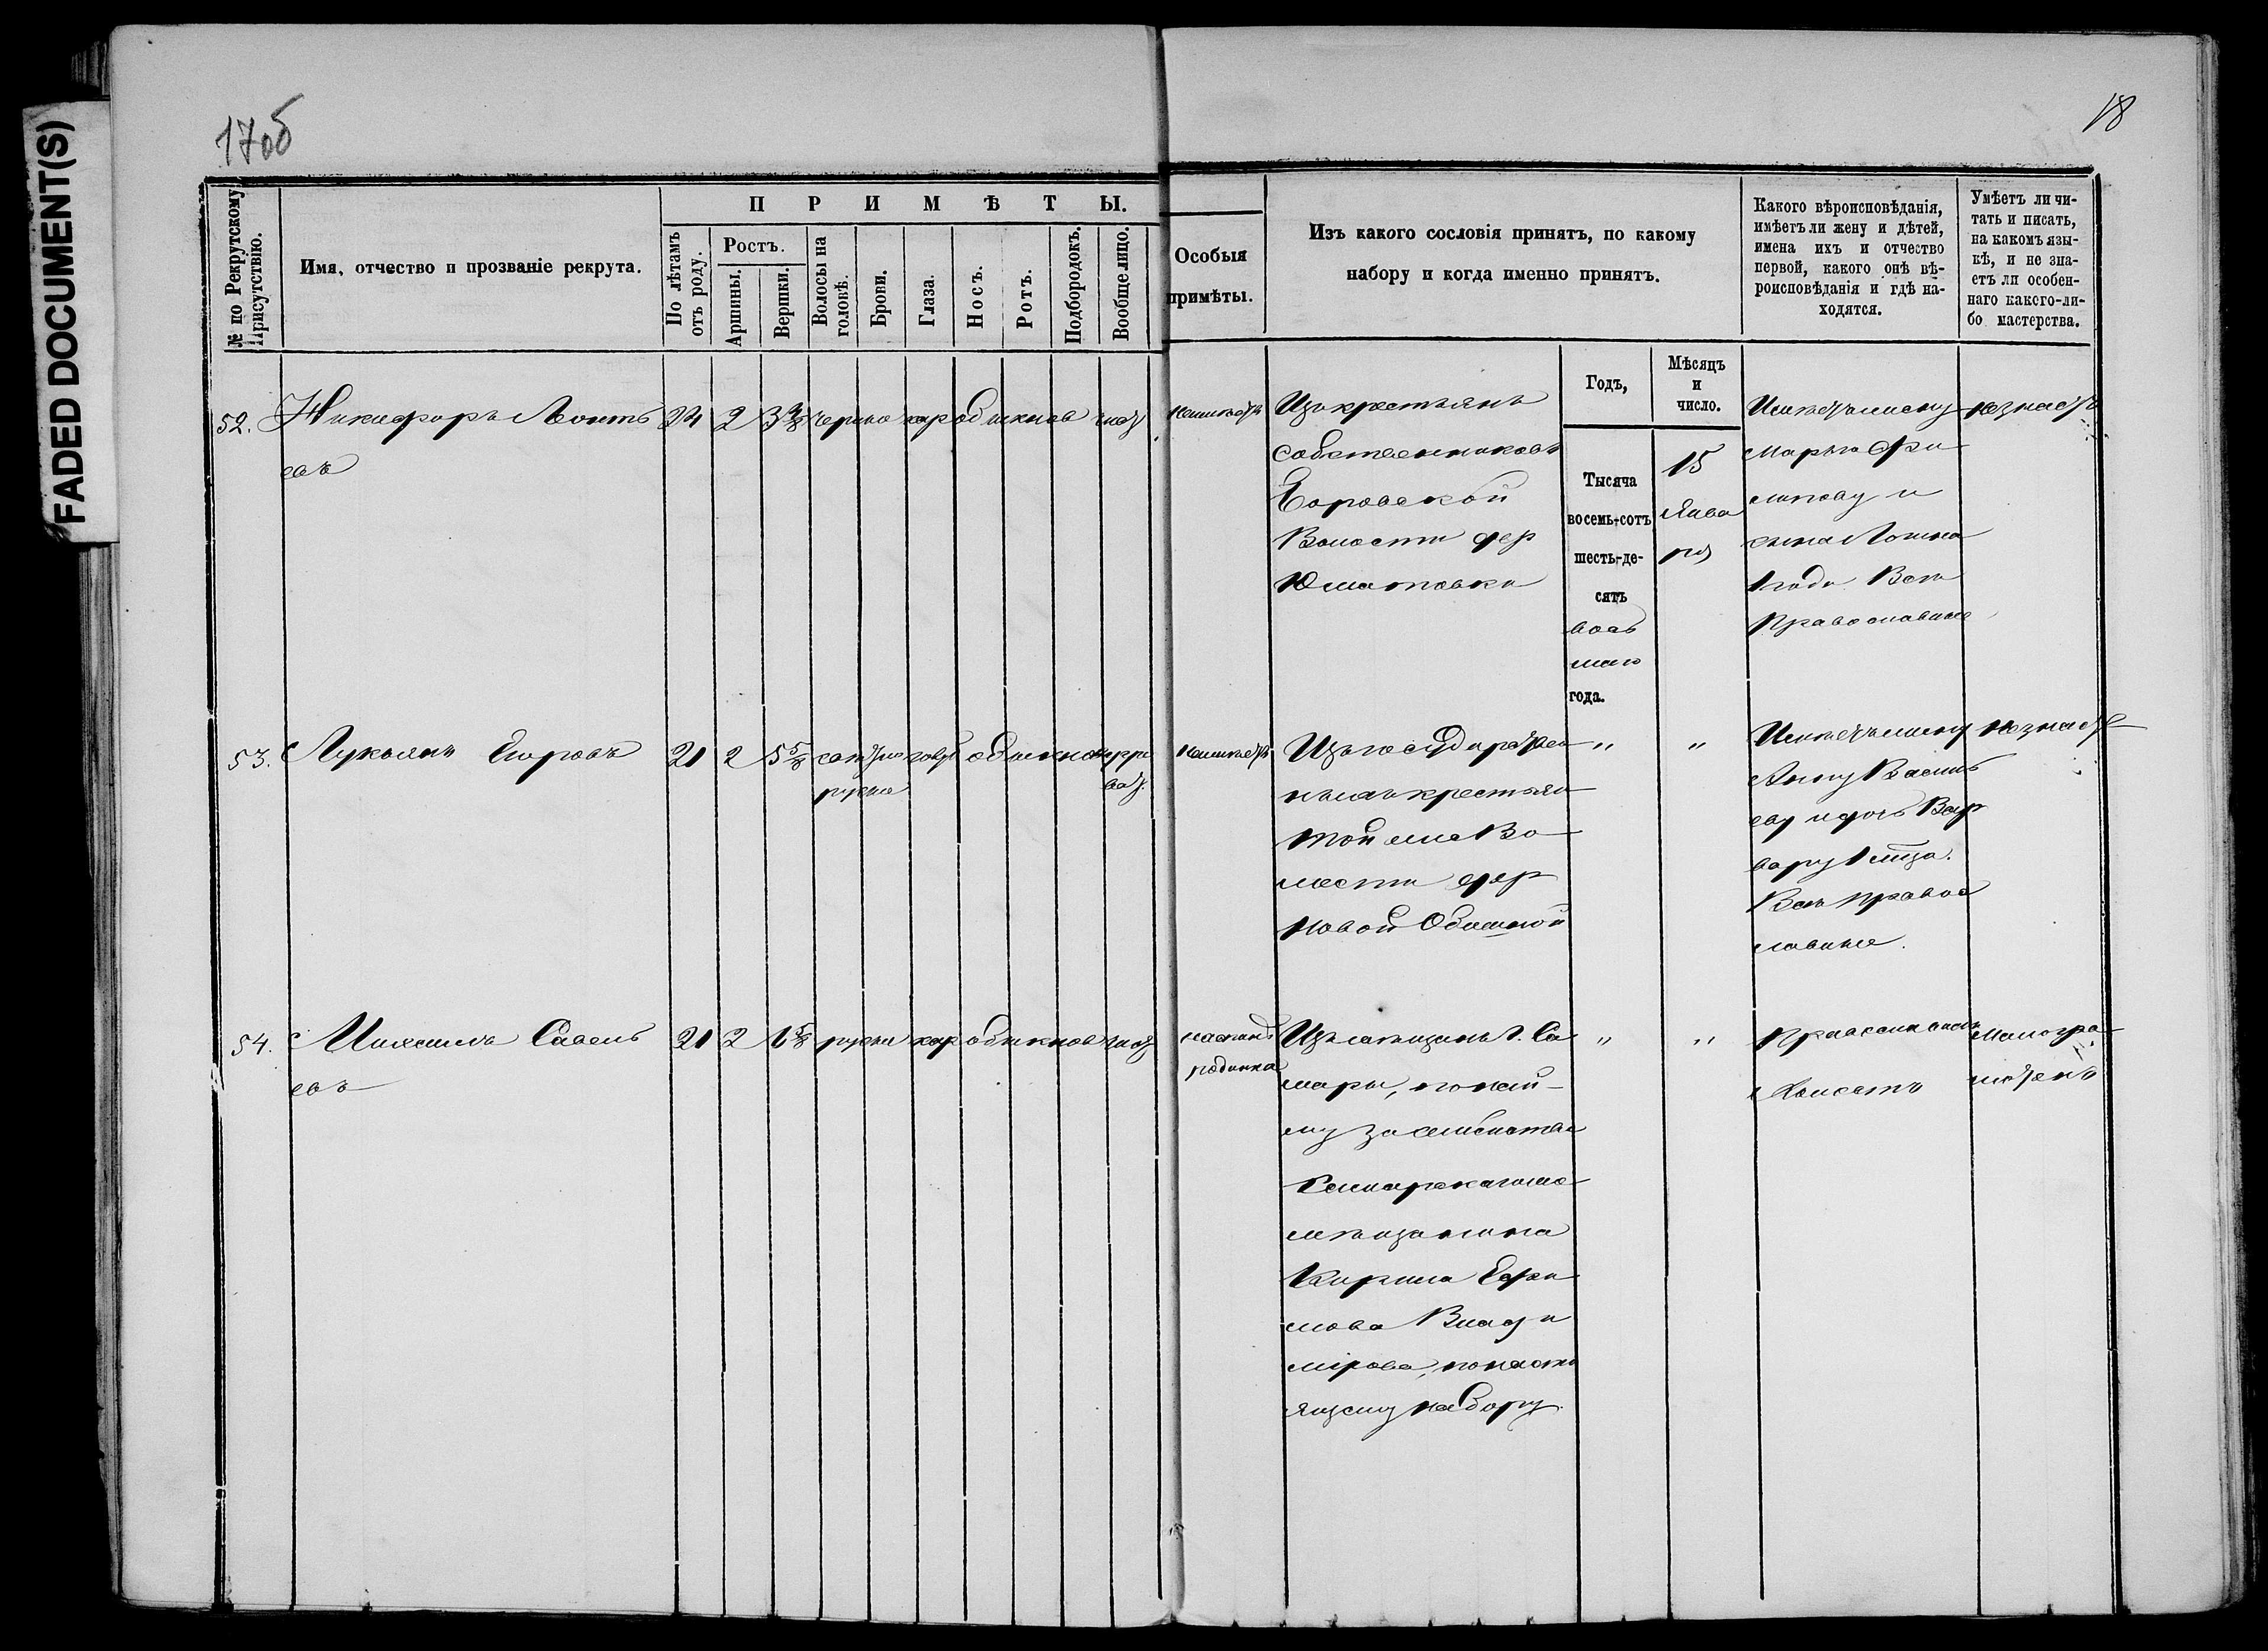 FADED DOCUMENT(S)
17об
18
№ по Рекрутскому
Присутствію.
Имя, отчество и прозваніе рекрута.
ПРИМѢТЫ.
По лѣтамъ
отъ роду.
Ростъ.
Аршины.
Вершки.
Волосы на
головѣ.
Брови.
Глаза.
Носъ.
Ротъ.
Подбородокъ.
Вообще лицо.
Особыя
примѣты.
Изъ какого сословія принятъ, по какому
набору и когда именно принятъ.
Какого вѣроисповѣданія,
имѣетъ ли жену и дѣтей,
имена ихъ и отчество
первой, какого онѣ вѣ-
роисповѣданія и гдѣ на-
ходятся.
Умѣетъ ли чи-
тать и писать,
на какомъ язы-
кѣ, и не зна-
етъ ли особен-
наго какого-ли-
бо мастерства.
Годъ,
Мѣсяцъ
и
число.
52. Никифоръ Леонть
евъ
22 2 3 черные кар обыкнов чис
неимѣетъ
Изъ крестьянъ
собственниковъ
Боровской
Волости дер
Юматовки
Тысяча
восемь-сотъ
шесть-де-
сятъ
вось
маго
года.
15
Янва
ря
Имѣетъ жену
Марью Фи
липову и
сына
1 года Всѣ
Православные
незнаетъ
53. Лукьянъ Егоровъ
21 2 5 5/8 свѣтло голуб обыкнов
русые
неимѣетъ
Изъ государствен
ныхъ крестьян
той же Во
лости дер
Новой
" "
Имѣетъ жену
Анну Василь
еву и дочь Вар
вару 1 м-ца.
Всѣ правос
лавные.
незнаетъ
54. Михаилъ Савель
евъ
21 2 6 5/8 русые кар обыкнов чист
родинка
Изъ мѣщанъ г. Са
мары, по най
му за семейство
Самарскаго
мѣщанина
Кирила Ефи
мова Влади
мірова, по насто
ящему набору.
" "
Православнаго
Холостъ
Малогра
мотенъ